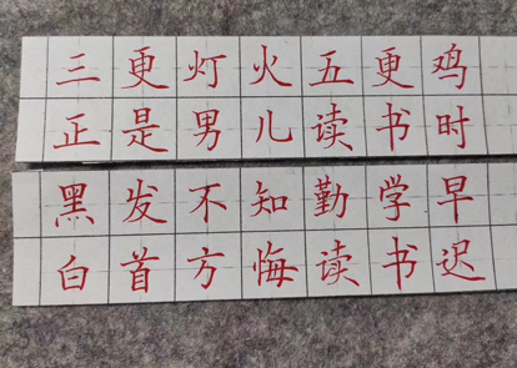 三更灯火五更鸡
正是男儿读书时
黑发不知勤学早
白首方悔读书迟